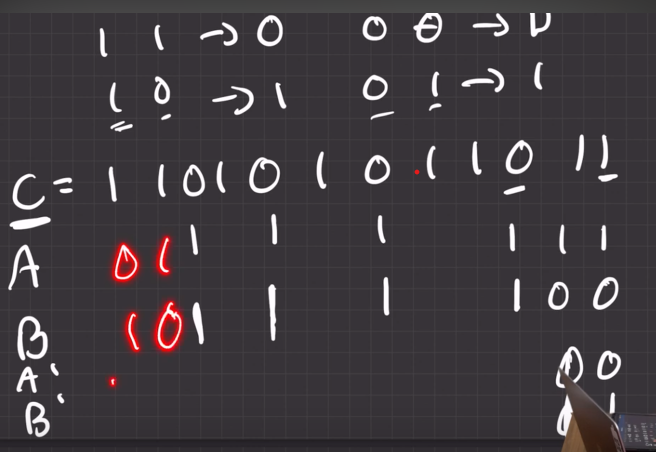 1 1 → 0 0 0 → 0
1 0 → 1 0 1 → 1
C = 1 1 0 1 0 1 0 1 1 0 1 1
A 0 1 1 1 1 1 1 1
B 1 0 1 1 1 1 0 0
A' 0 0
B' 0 1